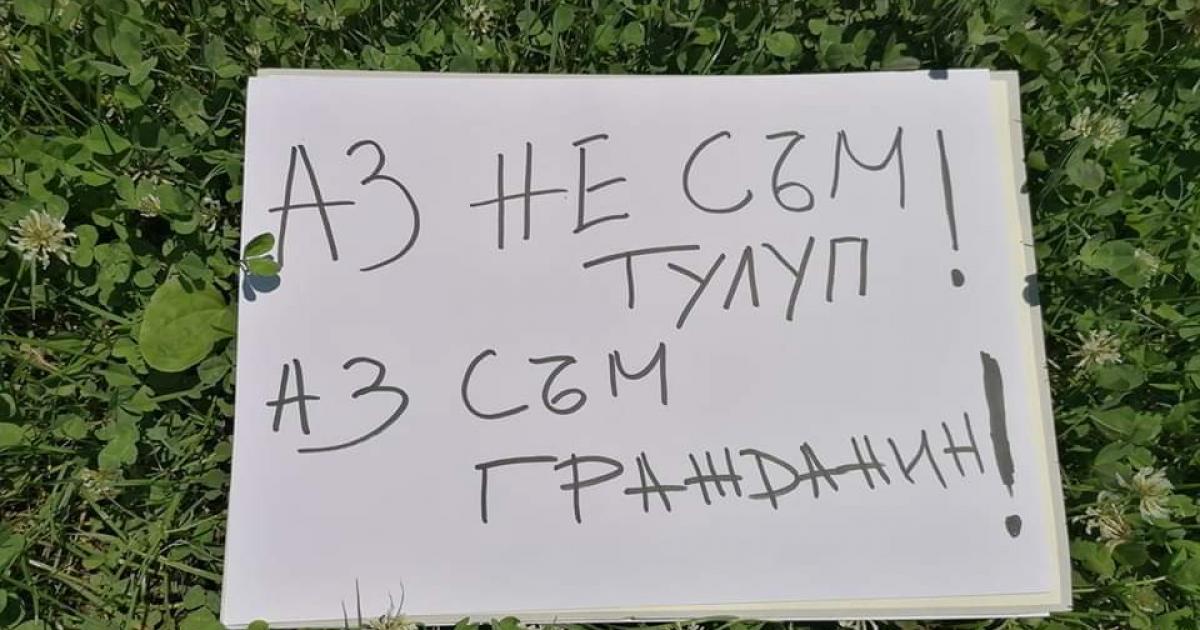 АЗ НЕ СЪМ!
ТУЛУП
АЗ СЪМ
ГРАЖДАНИН!